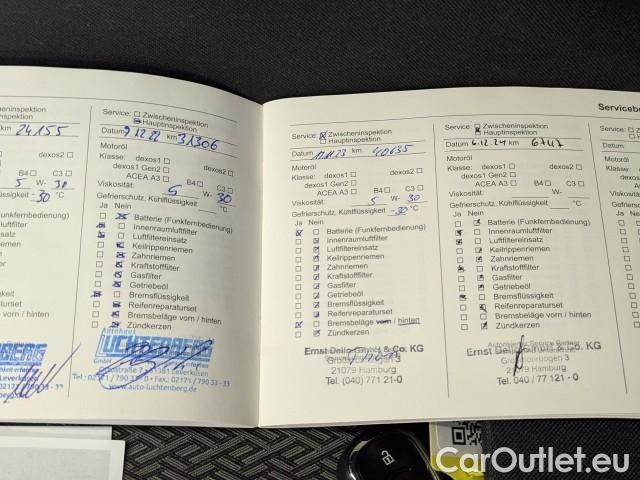 ceninspektion
inspektion
km 24155
dexos2
B4 C3
5 W- 30
-30 °C
Service: Zwischeninspektion
Hauptinspektion
Datum 9.12.22 km 31306
Motoröl
Klasse: dexos1 dexos2
dexos1 Gen2
ACEA A3 B4 C3
Viskosität: 5 W- 30
Gefrierschutz, Kühlflüssigkeit °C
Ja Nein
Batterie (Funkfernbedienung)
Innenraumluftfilter
Luftfiltereinsatz
Keilrippenriemen
Zahnriemen
Kraftstofffilter
Gasfilter
Getriebeöl
Bremsflüssigkeit
Reifenreparaturset
Bremsbeläge vorn / hinten
Zündkerzen
Autohaus
LUCHTENBERG
GmbH
51381 Leverkusen
Tel.: 02171 / 790 33-0 • Fax: 02171 / 790 33-33
www.auto-luchtenberg.de
Servicebe
Service: Zwischeninspektion
Hauptinspektion
Datum 17.11.23 km 40635
Motoröl
Klasse: dexos1 dexos2
dexos1 Gen2
ACEA A3 B4 C3
Viskosität: 5 W- 30
Gefrierschutz, Kühlflüssigkeit -30 °C
Ja Nein
Batterie (Funkfernbedienung)
Innenraumluftfilter
Luftfiltereinsatz
Keilrippenriemen
Zahnriemen
Kraftstofffilter
Gasfilter
Getriebeöl
Bremsflüssigkeit
Reifenreparaturset
Bremsbeläge vorn / hinten
Zündkerzen
Ernst Dello GmbH & Co. KG
21079 Hamburg
Tel. (040) 771 21-0
Service: Zwischeninspektion
Hauptinspektion
Datum 6.12.24 km
Motoröl
Klasse: dexos1 dexos2
dexos1 Gen2
ACEA A3 B4 C3
Viskosität: W-
Gefrierschutz, Kühlflüssigkeit °C
Ja Nein
Batterie (Funkfernbedienung)
Innenraumluftfilter
Luftfiltereinsatz
Keilrippenriemen
Zahnriemen
Kraftstofffilter
Gasfilter
Getriebeöl
Bremsflüssigkeit
Reifenreparaturset
Bremsbeläge vorn / hinten
Zündkerzen
Ernst Dello GmbH & Co. KG
21079 Hamburg
Tel. 040 / 77 121-0
Service:
Datum
Motoröl
Klasse:
Viskosität
Gefriers
Ja Nein
CarOutlet.eu